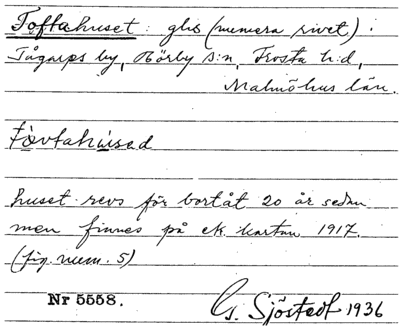 Toftahuset: glis (numera rivet).
Tågarps by, Hörby s:n, Frosta h:d,
Malmöhus län.
tòvtahùsed
huset revs för bortåt 20 år sedan
men finnes på ek. kartan 1917.
(fig. num. 5)
Nr 5558.
G. Sjöstedt 1936